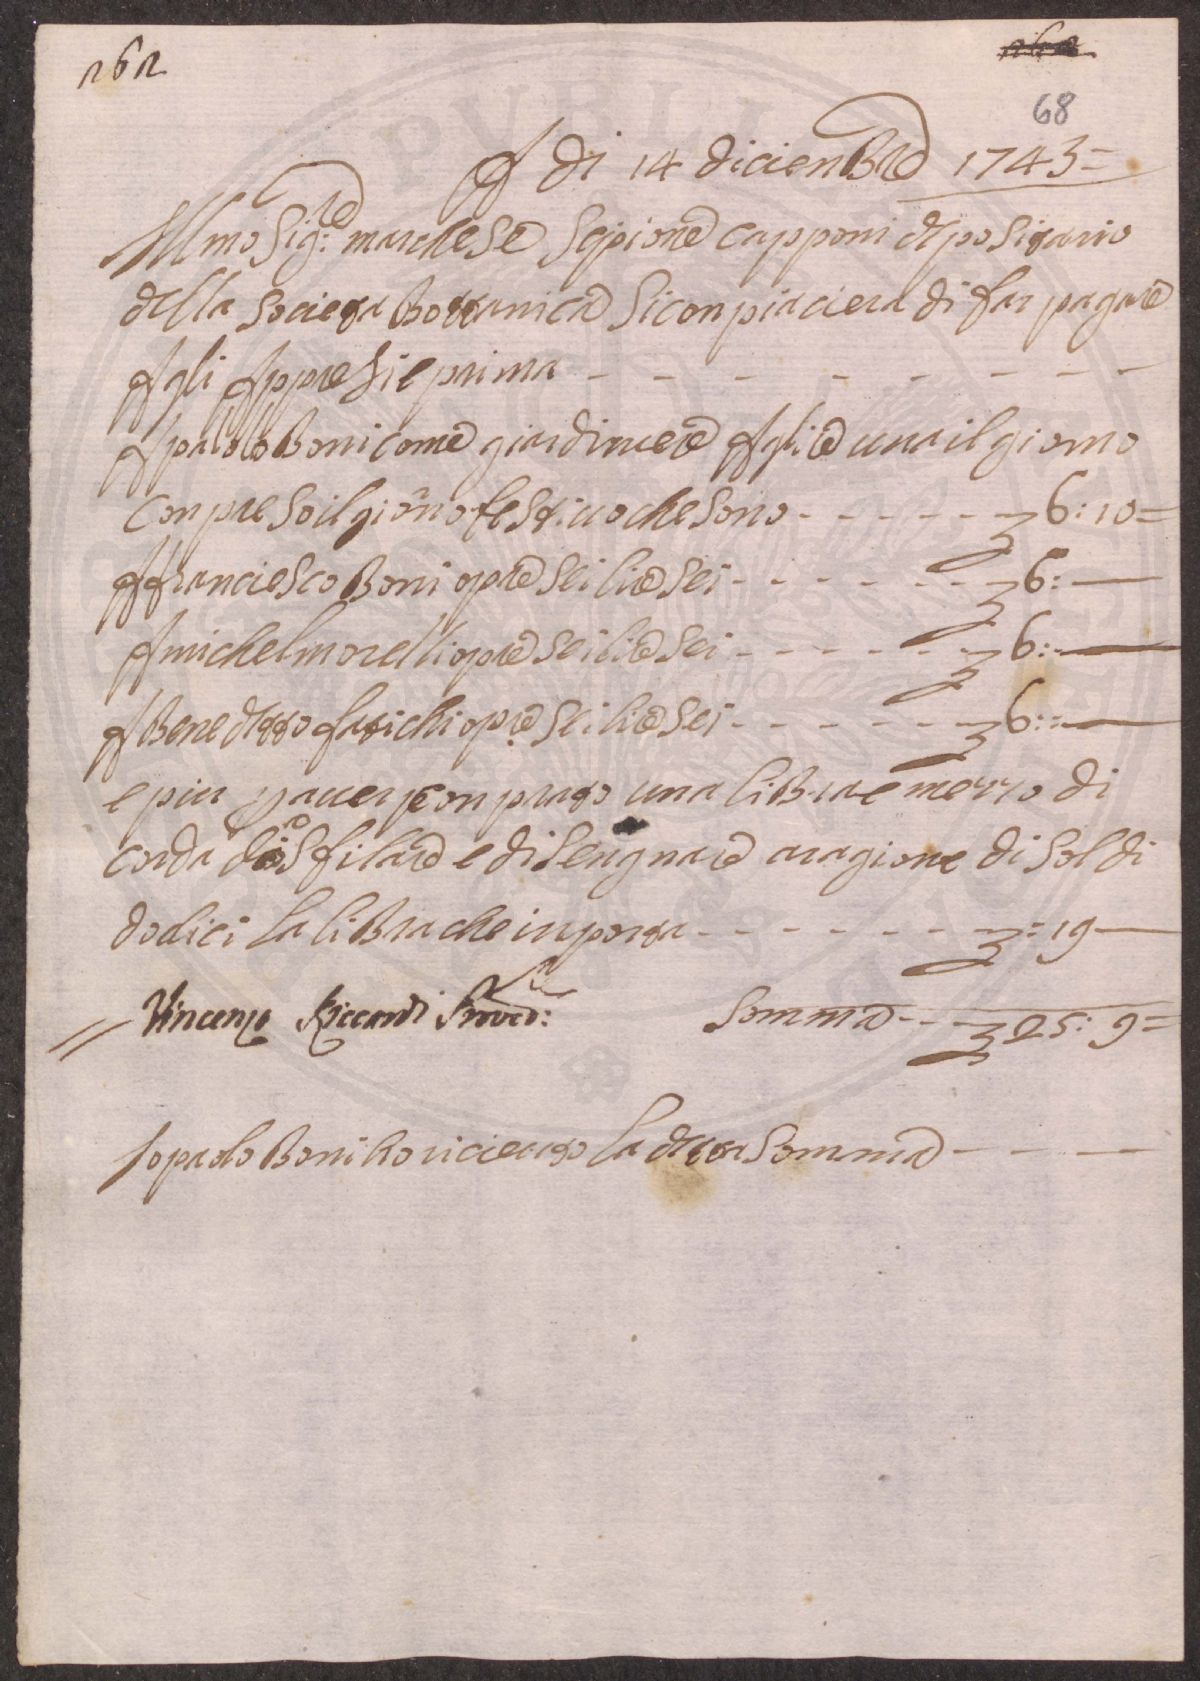 262
262
68
A di 14 diciembre 1743=
Illmo Sig:re marchese Scipione Capponi depositario
della Società Bottanica Si conpiacierà di far pagare
Agli Appresi e prima - - - - - - - -
A paolo Boni come giardiniere A lire una il giorno
conpreso il giorno festiuo che sono - - - - - - 6:10=
A franciesco Boni opre sei lire sei - - - - - - 6:—
A michel morelli opre sei lire sei - - - - - - 6:—
A Benedetto fatichi opre sei lire sei - - - - - - 6:—
e piu p auer conprato una libra e mezzo di
corda sfilare e disengnare a ragione di soldi
dodici la libra che inporta - - - - - - : 19—
Vincenzo Riccardi Proved:re
Somma - - - 25: 9=
Io paolo Boni ho riceuto la detta Somma - - - -
PVBLI